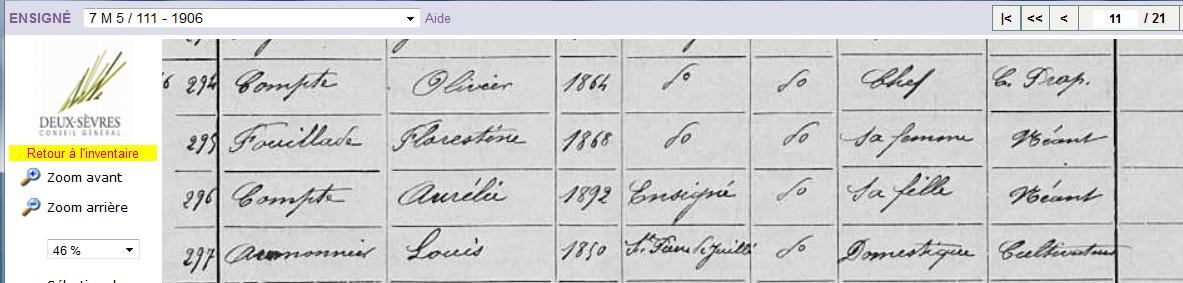 ENSIGNÉ 7 M 5 / 111 - 1906 Aide |< << < 11 / 21
DEUX-SÈVRES
CONSEIL GÉNÉRAL
Retour à l'inventaire
Zoom avant
Zoom arrière
46 %
294 Compte Olivier 1864 do do Chef C. Drap.
295 Fouillade Florestine 1868 do do Sa femme Néant
296 Compte Aurélie 1892 Ensigné do Sa fille Néant
297 Louis 1850 St Pierre de Juillé do Domestique Cultivateur